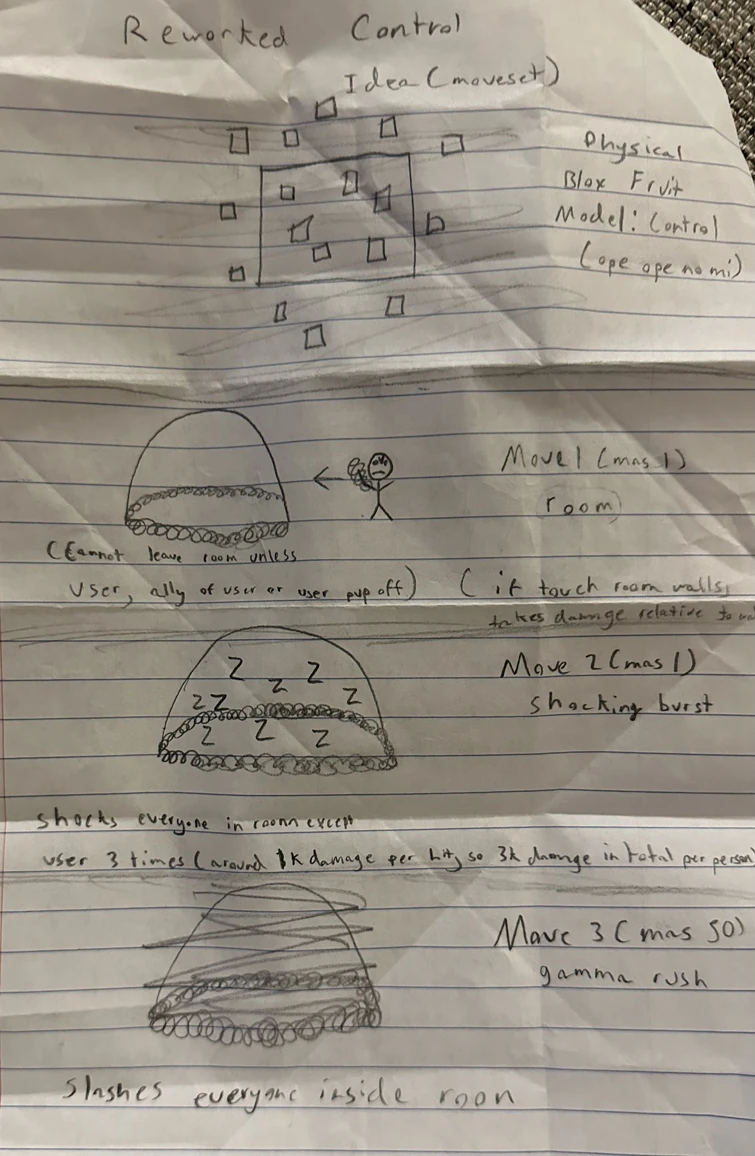 Reworked Control
Idea (moveset)
Physical
Blox Fruit
Model: Control
(ope ope no mi)
Move 1 (mas 1)
room
(Cannot leave room unless
user, ally of user or user pvp off)
(if touch room walls,
takes damage relative to
Z Z Z Z Z Z Z Z Z
Move 2 (mas 1)
shocking burst
shocks everyone in room except
user 3 times (around 1k damage per hit, so 3k damage in total per person)
Move 3 (mas 50)
gamma rush
Slashes everyone inside room